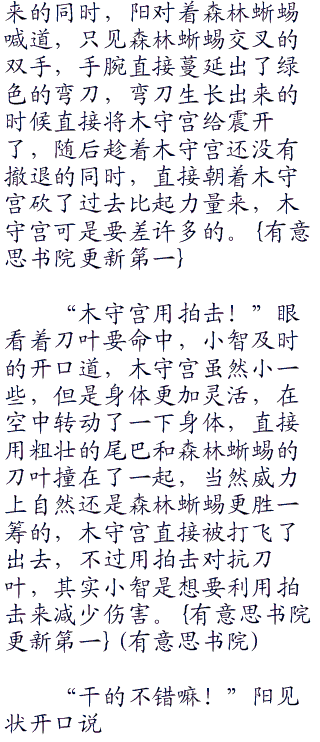 来的同时，阳对着森林蜥蜴
喊道，只见森林蜥蜴交叉的
双手，手腕直接蔓延出了绿
色的弯刀，弯刀生长出来的
时候直接将木守宫给震开
了，随后趁着木守宫还没有
撤退的同时，直接朝着木守
宫砍了过去比起力量来，木
守宫可是要差许多的。{有意
思书院更新第一}
“木守宫用拍击！”眼
看着刀叶要命中，小智及时
的开口道，木守宫虽然小一
些，但是身体更加灵活，在
空中转动了一下身体，直接
用粗壮的尾巴和森林蜥蜴的
刀叶撞在了一起，当然威力
上自然还是森林蜥蜴更胜一
筹的，木守宫直接被打飞了
出去，不过用拍击对抗刀
叶，其实小智是想要利用拍
击来减少伤害。{有意思书院
更新第一}(有意思书院)
“干的不错嘛！”阳见
状开口说